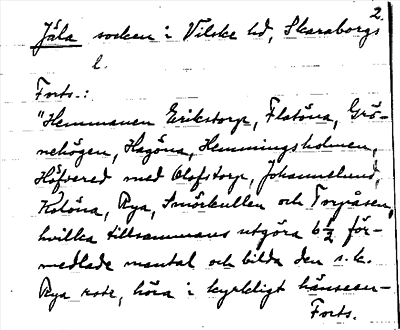 2.
Jäla socken i Vilske hd, Skaraborgs
l.
Forts.:
"Hemmanen Erikstorp, Flatöna, Grö-
nehögen, Hagöna, Hemmingsholmen,
Höfvered med Olofstorp, Johannelund,
Kolöna, Rya, Smörkullen och Torpåsen,
hvilka tillsammans utgöra 6½ för-
medlade mantal och bilda den s.k.
Rya rote, höra i kyrkligt hänseen-
Forts.